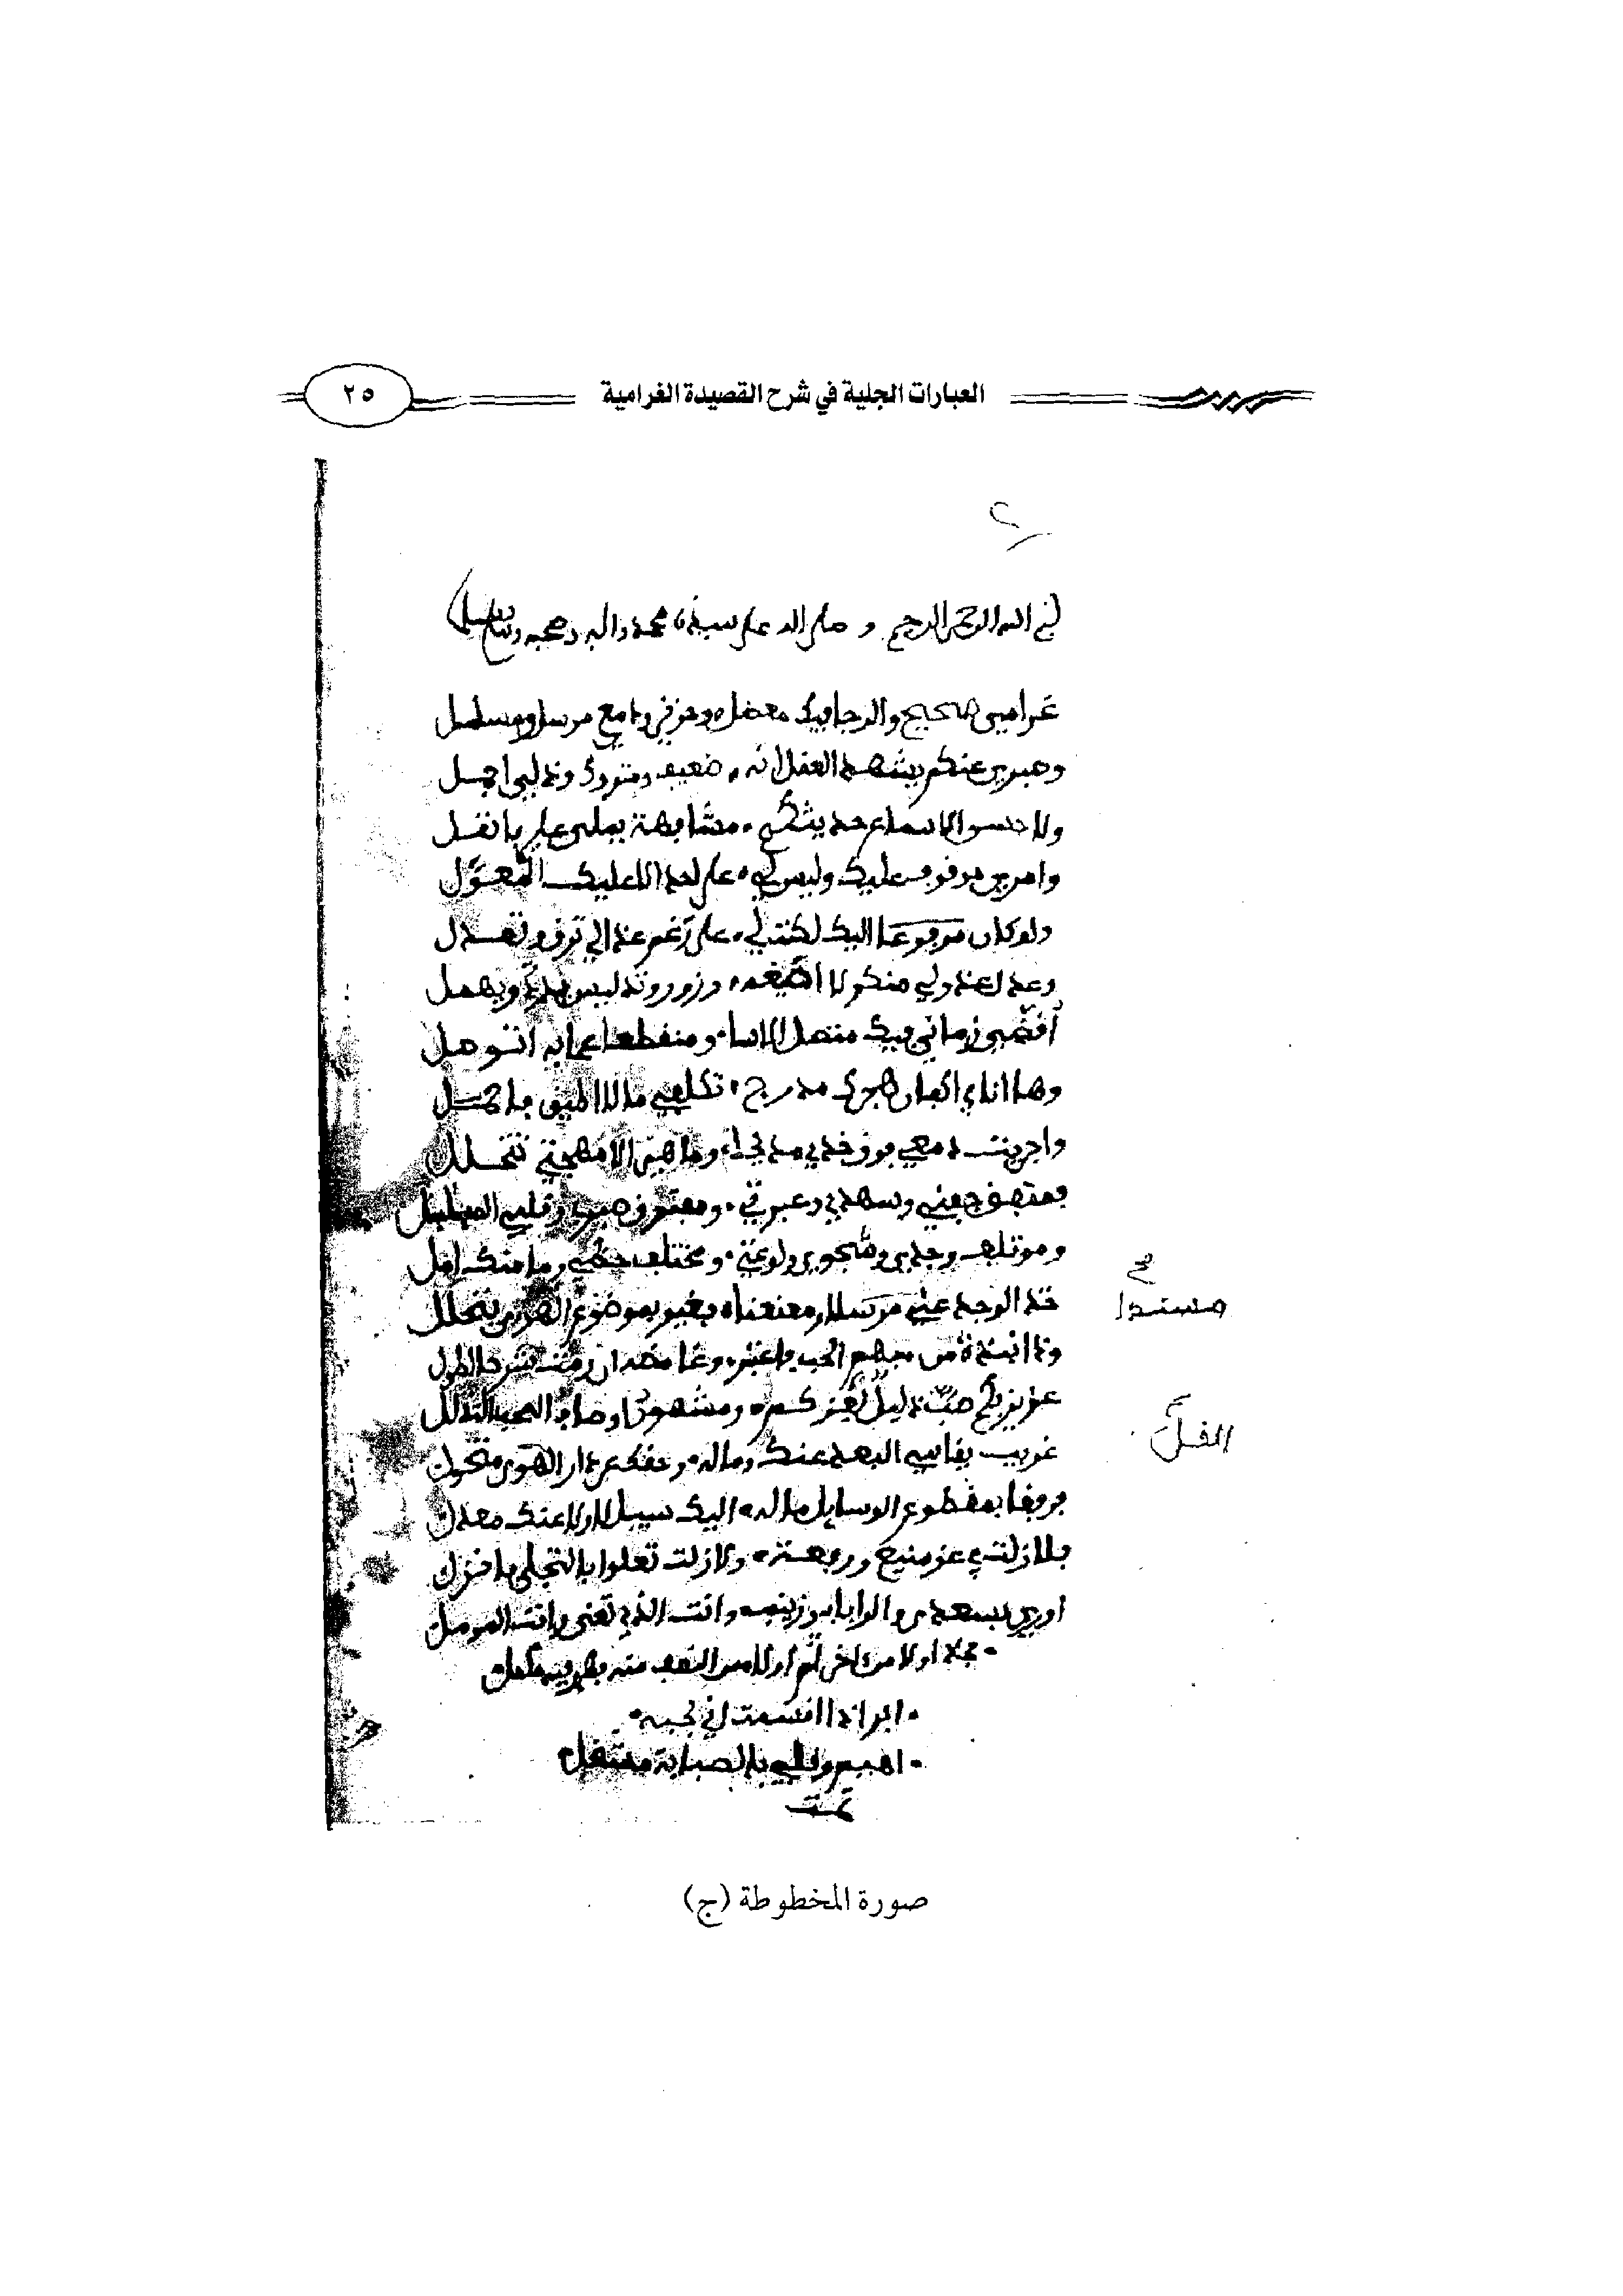 العبارات الجلية في شرح القصيدة الغرامية
٢٥
الرحيم و صلى الله على سيدنا محمد واله وصحبه وسلم
غرامي صحيح والرجا فيك معضل وحزني ودامع مرسل ومسلسل
وصبري عنكم يشهد العقل انه ضعيف ومتروك وذلي اجمل
ولا حسن الا سماع حديثكم مشابهة يملى علي فانقل
وامري موقوف عليك وليس لي على احد الا عليك المعول
ولو كان مرفوعا اليك لكنت لي على رغم عذالي ترق وتعدل
وعذل عذولي منكر لا اسيغه وزور وتدليس يرد ويهمل
اقضي زماني فيك متصل الاسا ومنقطعا عما به اتوصل
وها انا في اكفان هجرك مدرج تكلفني ما لا اطيق فاحمل
واجريت دمعي فوق خدي مدبجا وما هي الا مهجتي تتحلل
فمتفق جفني وسهدي وعبرتي ومفترق صبري وقلبي المبلبل
وموتلف وجدي وشجوي ولوعتي ومختلف حظي وما منك امل
خذ الوجد عني مرسلا ومعنعنا فغيري بموضوع الهوى يتحلل
مسندا
وذا نبذة من مبهم الحب فاعتبر وغامضه ان رمت شرحا اطول
عزيز بكم صب ذليل لعزكم ومشهور اوصاف المحب التذلل
غريب يقاسي البعد عنك وماله وحقك عن دار الهوى متحول
فرفقا بمقطوع الوسايل ماله اليك سبيل لا ولا عنك معدل
فلا زلت في عز منيع ورفعة ولا زلت تعلوا بالتجلي فانزل
اوري بسعدى والرباب وزينب وانت الذي تعنى وانت المومل
فخذ اولا من اخر ثم اولا من النصف منه فهو فيه مكمل
ابر اذا اقسمت اني بحبه
اهيم وقلبي بالصبابة مشعل
تمت
صورة المخطوطة (ج)